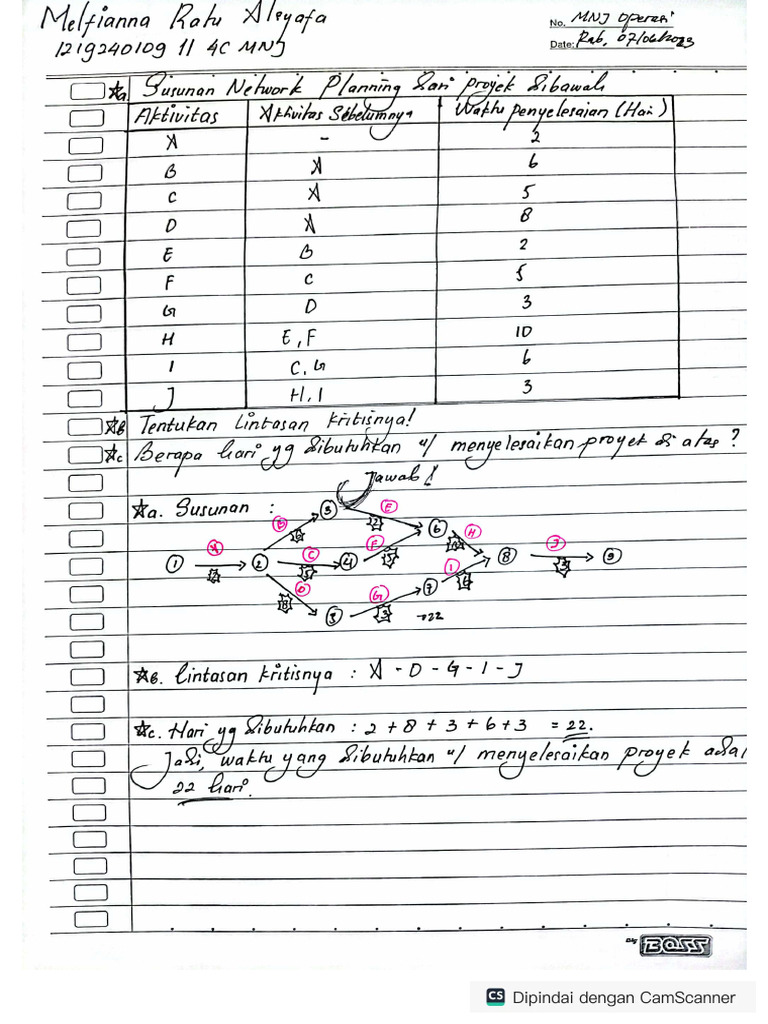 Melfianna Ratu Alsyafa
1219240109 11 4C MNJ
No. MNJ Operasi
Date: Rab, 07/06/2023
☆a. Susunan Network Planning dari proyek dibawah
Aktivitas | Aktivitas Sebelumnya | Waktu penyelesaian (Hari)
A | - | 2
B | A | 6
C | A | 5
D | A | 8
E | B | 2
F | C | 5
G | D | 3
H | E, F | 10
I | C, G | 6
J | H, I | 3
☆b Tentukan lintasan kritisnya!
☆c Berapa hari yg dibutuhkan u/ menyelesaikan proyek di atas?
Jawab!
☆a. Susunan :
3 E
B 2 6 H
A C F J
1 2 4 8 9
2 5 5 3
D G 7 I
8 3 3 →22
☆b. lintasan kritisnya : A - D - G - I - J
☆c. Hari yg dibutuhkan : 2 + 8 + 3 + 6 + 3 = 22.
Jadi, waktu yang dibutuhkan u/ menyelesaikan proyek adal
22 hari.
BOSS
CS Dipindai dengan CamScanner